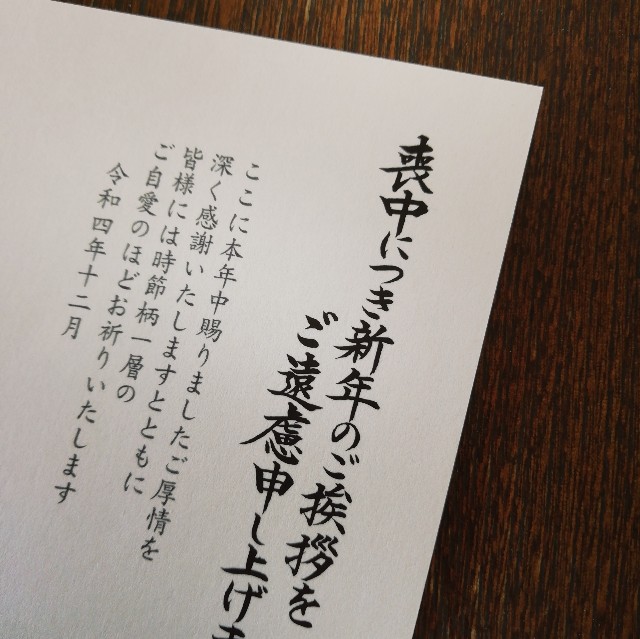 喪中につき新年のご挨拶を
ご遠慮申し上げま
ここに本年中賜りましたご厚情を
深く感謝いたしますとともに
皆様には時節柄一層の
ご自愛のほどお祈りいたします
令和四年十二月